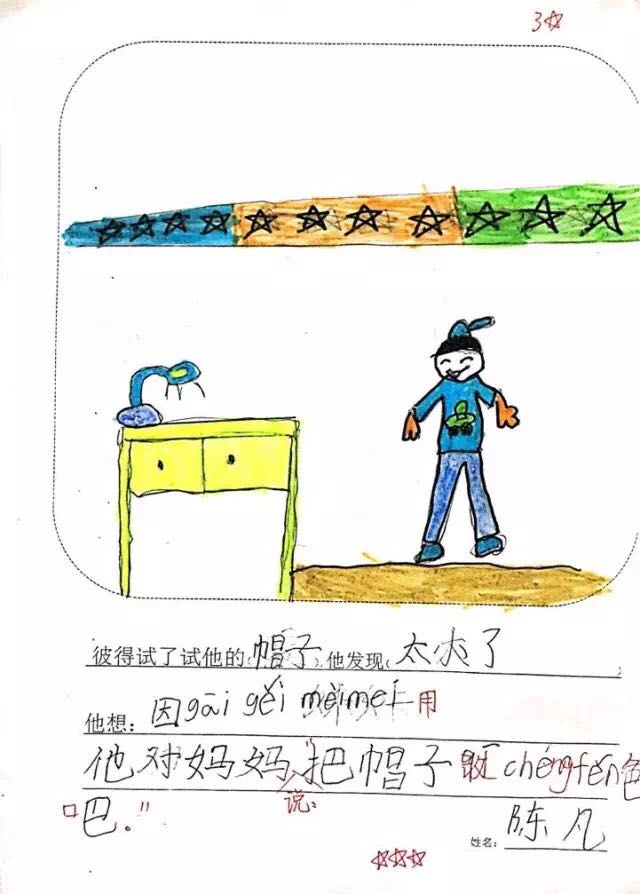 3☆
彼得试了试他的(帽子),他发现(太小了
他想:因gāi gěi mèimei用
他对妈妈说:“把帽子 chéngfěn色
吧。”
姓名:陈凡
☆☆☆